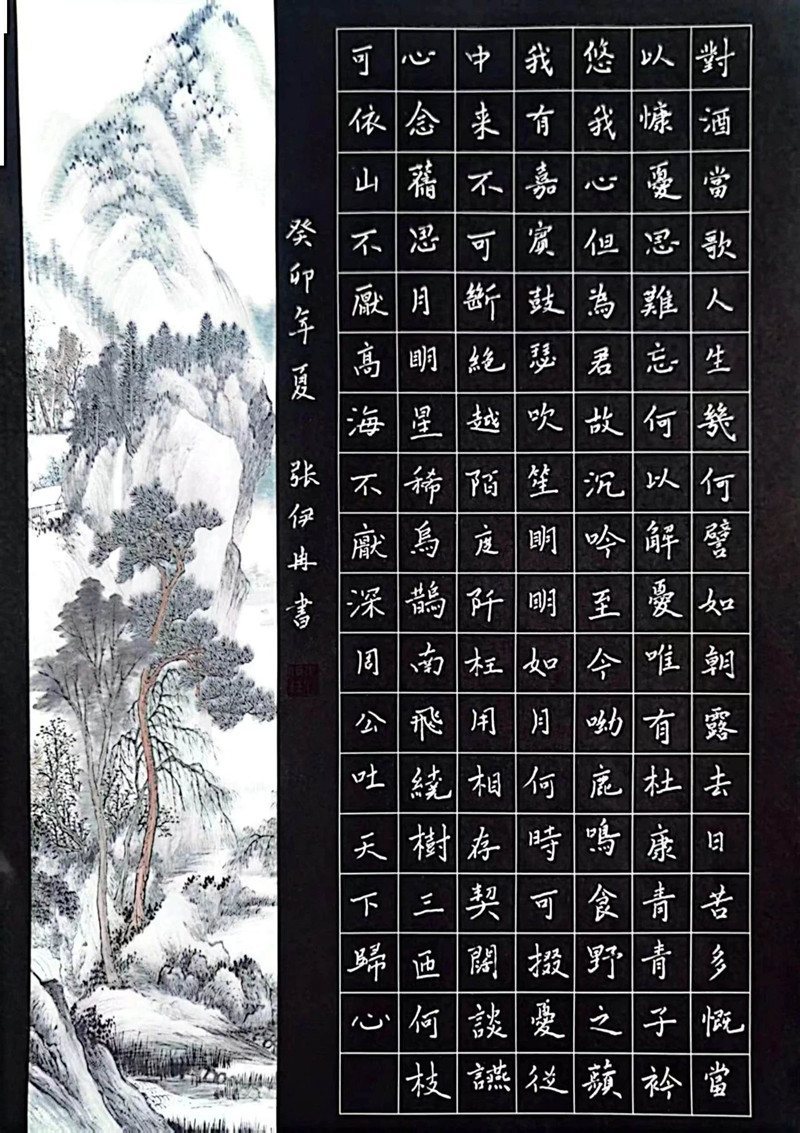 對酒當歌人生幾何譬如朝露去日苦多慨當
以慷憂思難忘何以解憂唯有杜康青青子衿
悠我心但為君故沉吟至今呦鹿鳴食野之蘋
我有嘉賓鼓瑟吹笙明明如月何時可掇憂從
中来不可斷絕越陌度阡枉用相存契闊談讌
心念舊恩月明星稀烏鵲南飛繞樹三匝何枝
可依山不厭高海不厭深周公吐天下歸心
癸卯年夏 张伊冉書